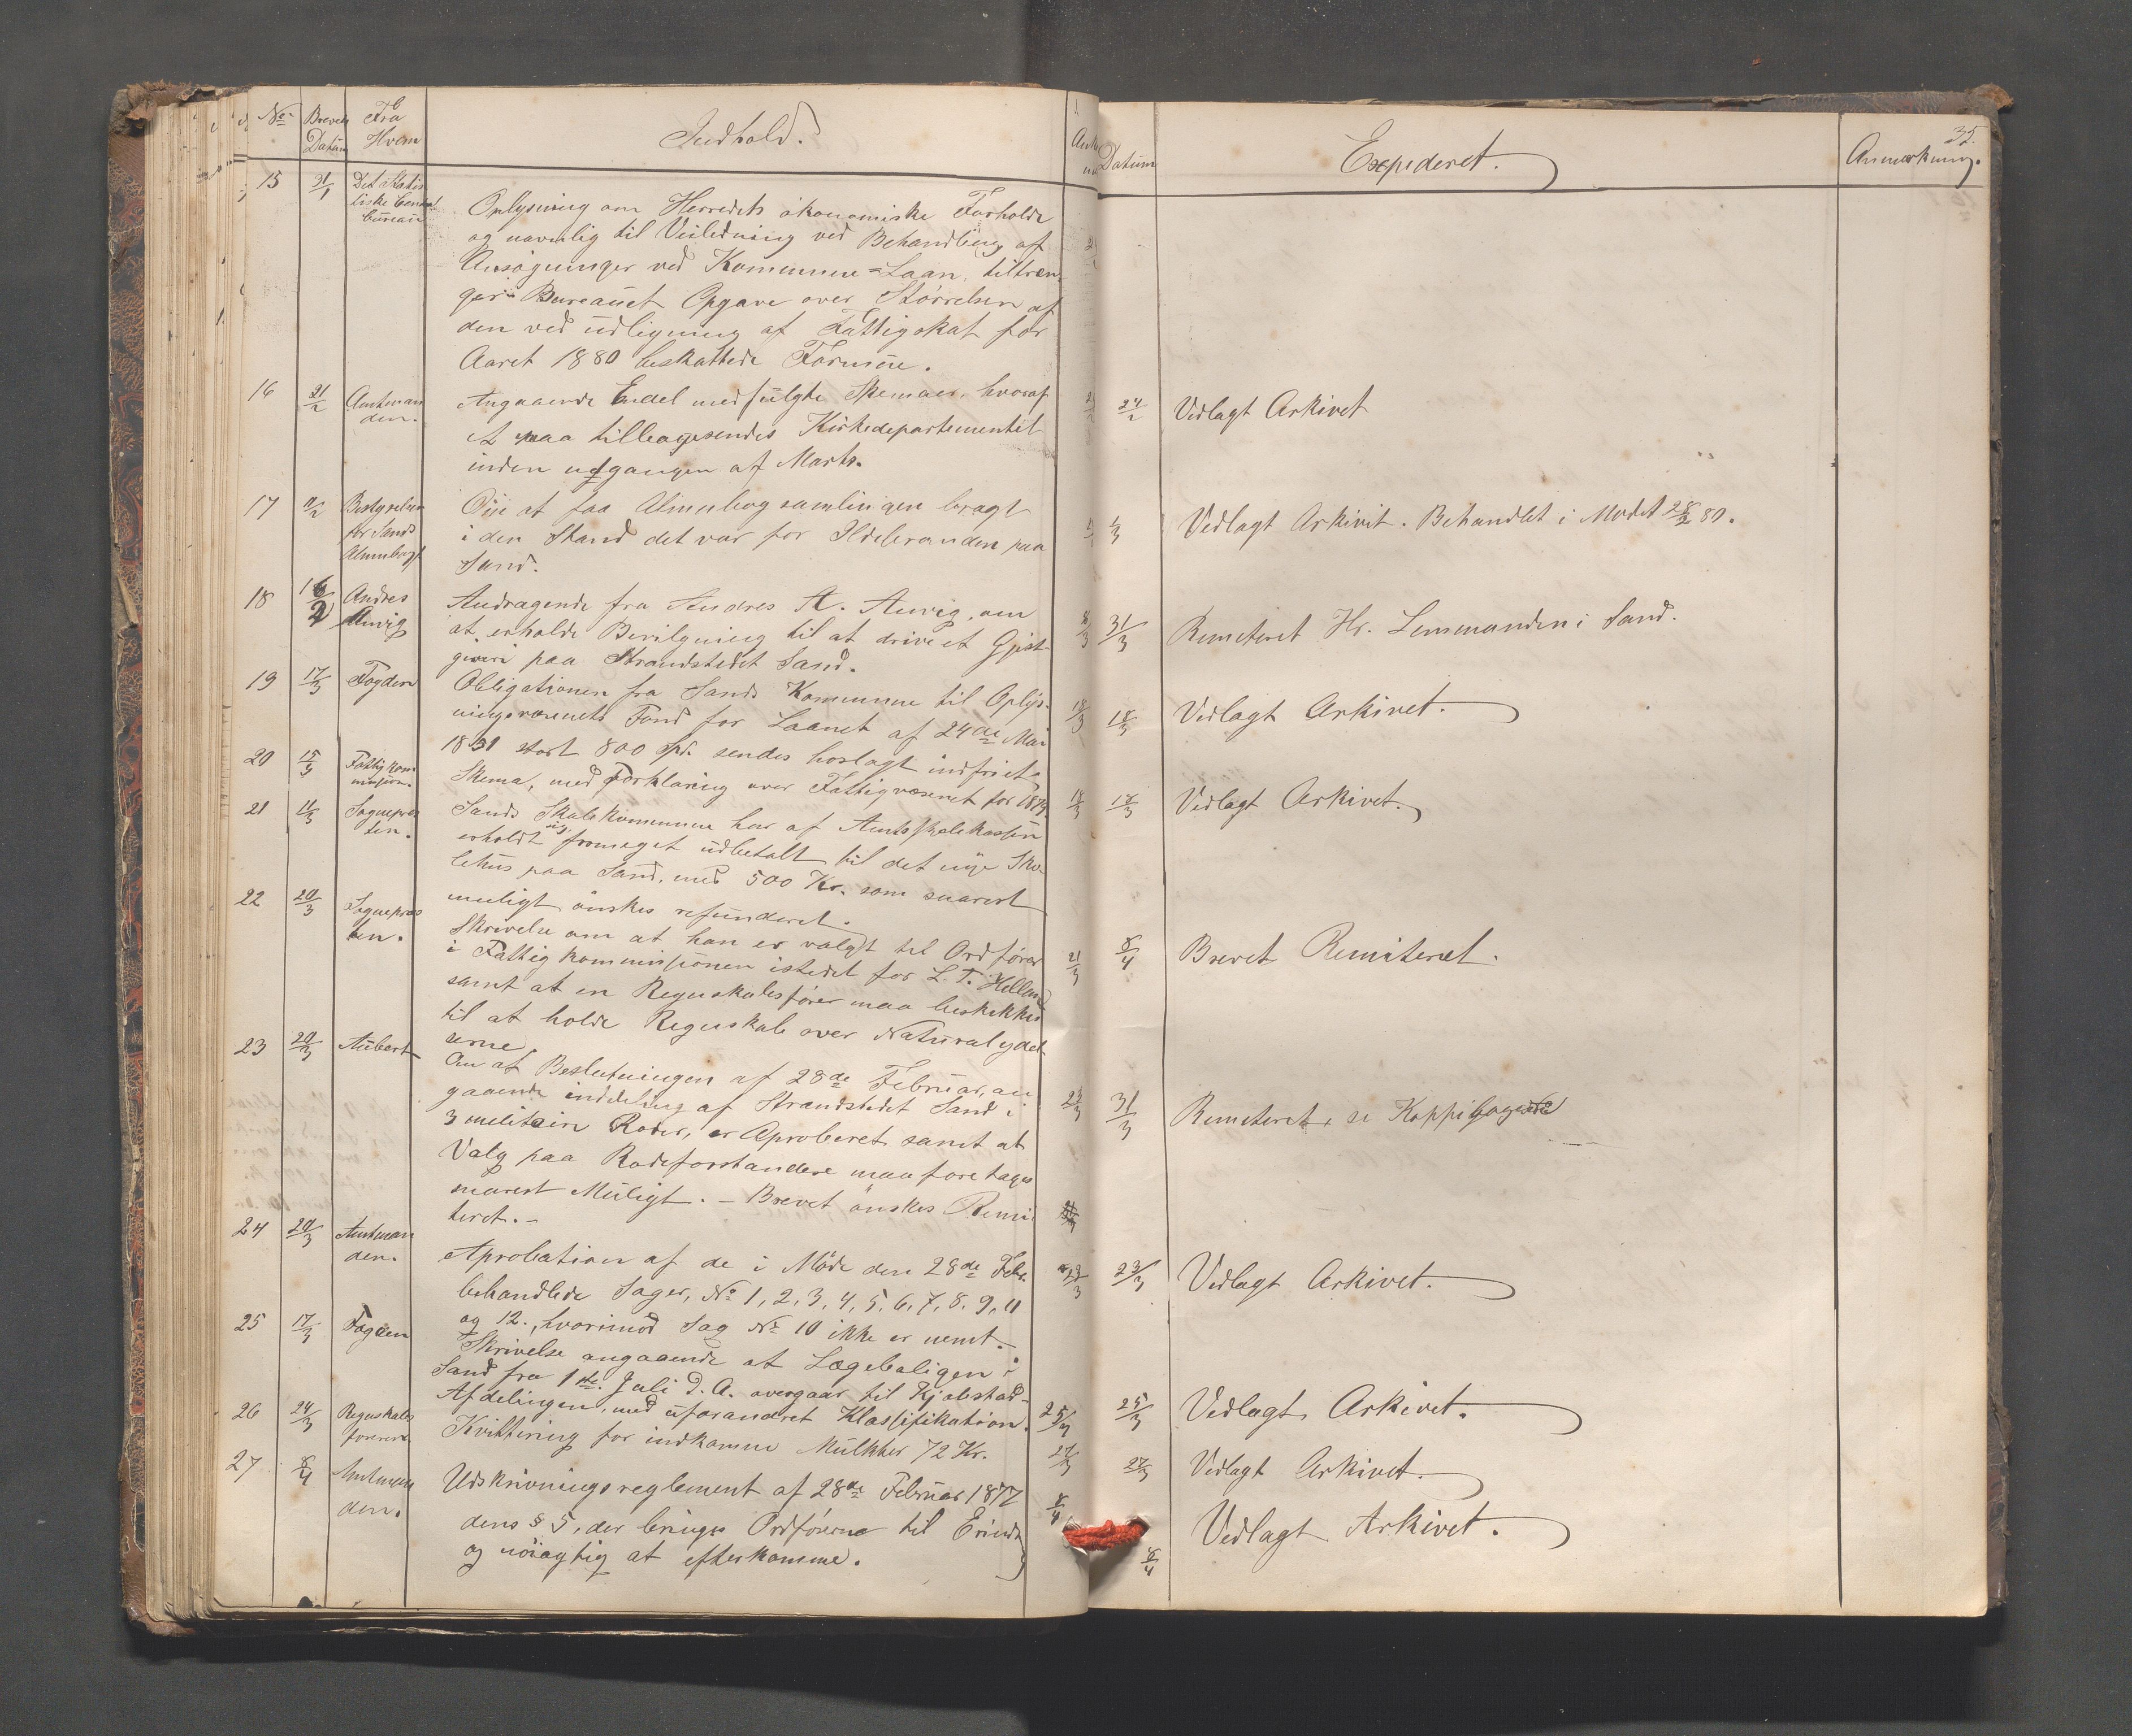 No Brevets Datum Fra Hvem Indhold. Ank
15 31/1 Det statis
tiske Central
bureau
Oplysning om Herredets økonomiske Forholde
og navnlig til Veiledning ved Behandling af
Ansøgninger ved Kommune=Laan, tiltræn-
ger Bureauet Opgave over Størrelsen af
den ved udligning af Fattigskat for
Aaret 1880 beskattede Formue.
16 21/2 Amtman
den.
Angaaende Endel medfülgte Skemaer, hvoraf
et maa tilbagesendes Kirkedepartementet
inden udgangen af Marts.
17 11/2 Bestyrelsen
for Sands
Almuebogs
at faa Almuebogsamlingen bragt
i den Stand det var før Ildebranden paa
Sand.
18 16/2 Andres
Anvig
Andragende fra Andres A. Anvig, om
at erholde Bevilgning til at drive et Gjæst-
giveri paa Strandstedet Sand. 8/3
19 17/3 Fogden
Obligationen fra Sands Kommune til Oplys-
ningsvæsenets Fond for Laanet af 24de Mai
1851 stort 800 Spd. sendes hoslagt indfriet. 18/3
20 15/3 Fattigkom
mission.
Skema, med Forklaring over Fattigvæsenet for 1879. 18/3
21 11/3 Sognepræs
ten.
Sands Skolekommune har af Amtsskolekassen
erholdt formeget udbetalt til det nye Sko-
lehus paa Sand, med 500 Kr. som snarest
muligt ønskes refunderet.
22 20/3 Sognepræs
ten.
Skrivelse om at han er valgt til Ordfører
i Fattigkommissionen istedet for L. T. Helland
samt at en Regnskabsfører maa beskikkes
til at holde Regnskab over Naturalydel-
serne. 21/3
23 20/3 Aubert
Om at Beslutningen af 28de Februar, an
gaaende inddeling af Strandstedet Sand i
3 militær Roder, er Aproberet samt at
Valg paa Rodeforstandere maa foretages
snarest Muligt. - Brevet ønskes Remi
teret. - 23/3
24 20/3 Amtman
den.
Aprobation af de i Møde den 28de Febr.
behandlede Sager, No 1, 2, 3, 4, 5, 6, 7, 8, 9, 11
og 12., hvorimod Sag No 10 ikke er nemt. 23/3
25 17/3 Fogden
Skrivelse angaaende at Lægeboligen i
Sand fra 1ste Juli d. A. overgaar til Kjøbstad-
Afdelingen, med uforandret Klassifikation. 25/3
26 24/3 Regnskabs
føreren
Kvittering for indkomne Mulkter 72 Kr. 27/3
27 8/4 Amtman
den.
Udskrivningsreglement af 28de Februar 1877
dens § 5, der bringes Ordførerne til Erindr
og nøiagtig at efterkomme. 8/4
35.
Datum Expideret. Anmærkning.
24/2 Vedlagt Arkivet
1/3 Vedlagt Arkivet. Behandlet i Mødet 28/2 80.
31/3 Remiteret Hr. Lensmanden i Sand.
18/3 Vedlagt Arkivet.
18/3 Vedlagt Arkivet.
8/4 Brevet Remiteret.
31/3 Remiteret, se Koppibogen
23/3 Vedlagt Arkivet.
25/3 Vedlagt Arkivet.
27/3 Vedlagt Arkivet.
8/4 Vedlagt Arkivet.